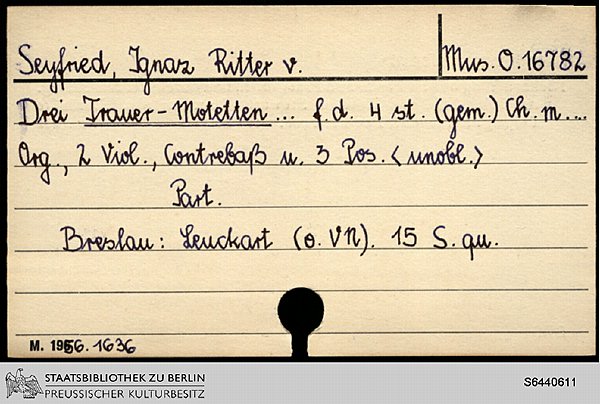 Seyfried, Ignaz Ritter v.
Mus. O. 16782
Drei Trauer-Motetten ... f. d. 4 st. (gem.) Ch. m. ...
Org., 2 Viol., Contrebaß u. 3 Pos. <unobl.>
Part.
Breslau: Leuckart (o. VN). 15 S. qu.
M. 1956. 1636
STAATSBIBLIOTHEK ZU BERLIN
PREUSSISCHER KULTURBESITZ
S6440611